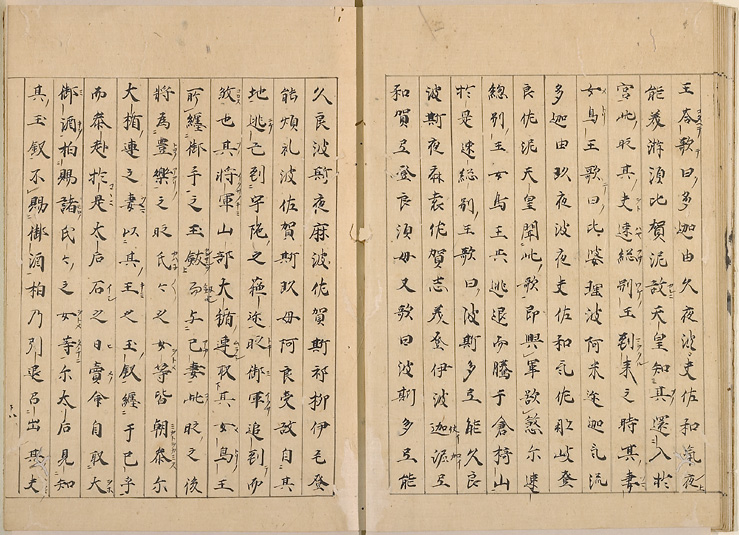 王荅歌曰多迦由久夜波夫佐和氣夜
能羙游須比賀泥故天皇知其還入於
宮此時其夫速総別王到来之時其妻
女鳥王歌曰比婆理波阿米迩迦氣流
多迦由玖夜波夜夫佐和氣佐耶岐登
良佐泥天皇聞此歌即興軍欲煞尒速
総別王女鳥王共逃退而騰于倉椅山
於是速総別王歌曰波斯多弖能久良
波斯夜麻袁佐賀志羙登伊波迦泥弖
和賀弖登良須母又歌曰波斯多弖能
久良波斯夜麻波佐賀斯祁柳伊毛登
能煩礼波佐賀斯玖母阿良受故自其
地逃亡到宇陀之蘓迩時御軍追到而
煞也其将軍山部大楯連取其女鳥王
所纏御手之玉釼而与己妻此時之後
将為豊樂之時氏々之女等皆朝参尒
大楯連之妻以其王之玉釼纏于己手
而参赴於是大后石之日賣命自取大
御酒柏賜諸氏々之女等尒大后見知
其玉釼不賜御酒柏乃引退召出其夫